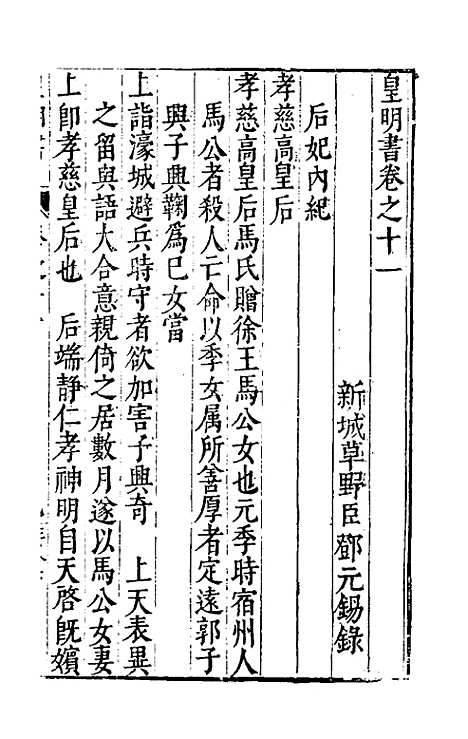 皇明書卷之十一
新城草野臣鄧元錫錄
后妃內紀
孝慈高皇后
孝慈高皇后馬氏贈徐王馬公女也元季時宿州人
馬公者殺人亡命以季女属所善厚者定遠郭子
興子興鞠爲巳女當
上詣濠城避兵時守者欲加害子興奇 上天表異
之留與語大合意親倚之居數月遂以馬公女妻
上卽孝慈皇后也 后端靜仁孝神明自天啓旣嬪